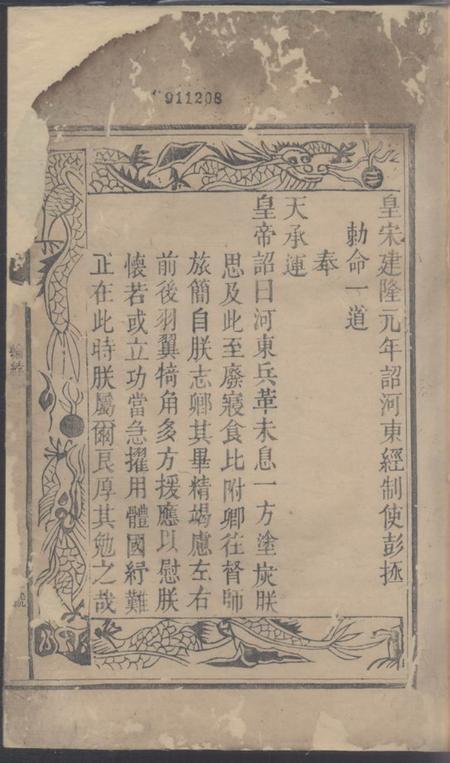 911208
皇宋建隆元年詔河東經制使彭拯
勅命一道
奉
天承運
皇帝詔曰河東兵革未息一方塗炭朕
思及此至廢寢食比附卿往督師
旅簡自朕志卿其畢精竭慮左右
前後羽翼犄角多方援應以慰朕
懷若或立功當急擢用體國紓難
正在此時朕屬爾良厚其勉之哉